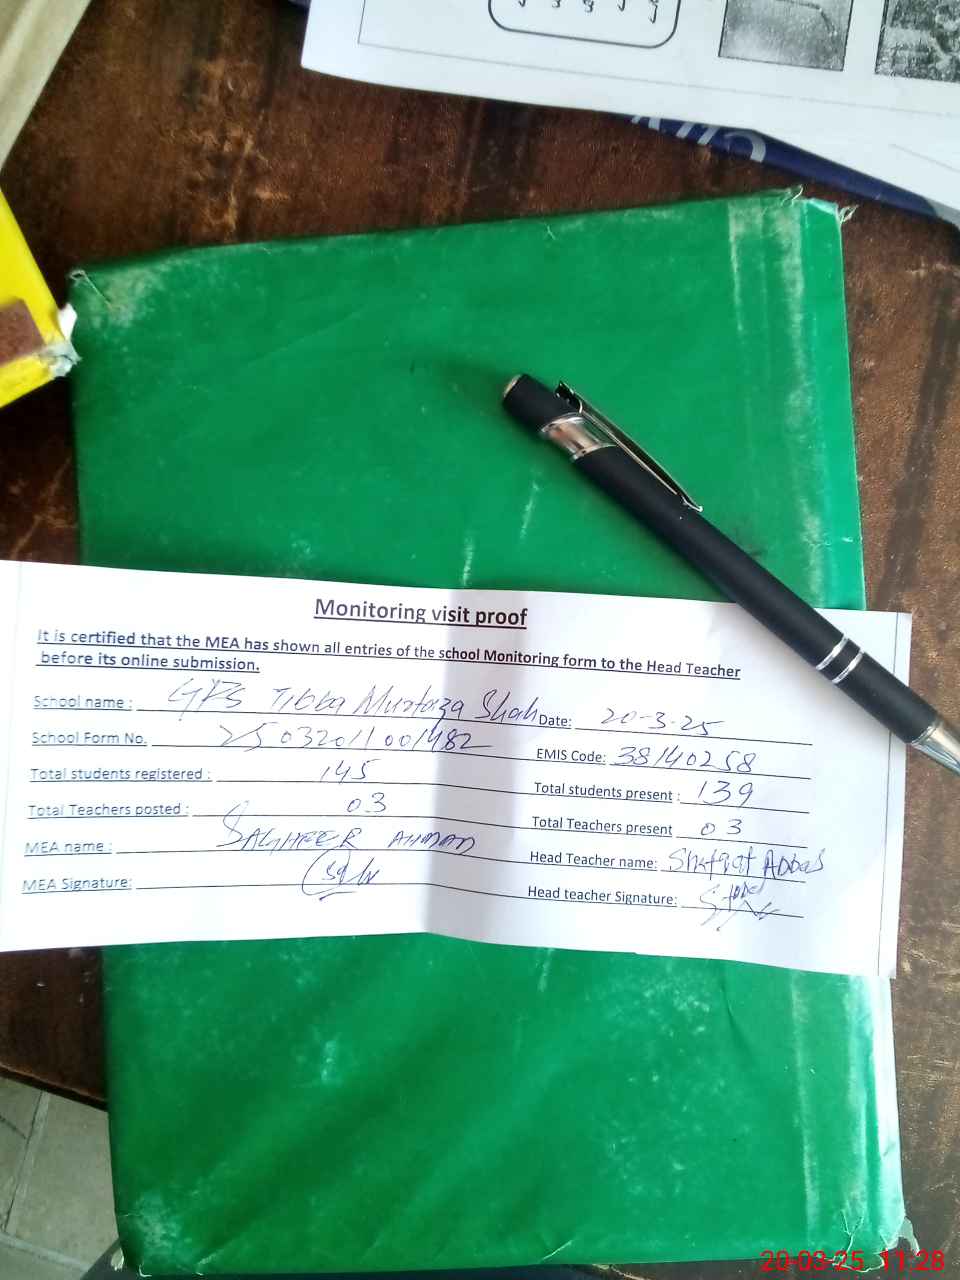 Monitoring visit proof
It is certified that the MEA has shown all entries of the school Monitoring form to the Head Teacher
before its online submission.
School name : GPS Tibba Murtaza Shah Date: 20-3-25
School Form No. 25032011001482 EMIS Code: 38140258
Total students registered : 145 Total students present : 139
Total Teachers posted : 03 Total Teachers present 03
MEA name : SAGHEER AHMAD Head Teacher name: Shafqat Abbas
MEA Signature: Head teacher Signature:
20-03-25 11:28